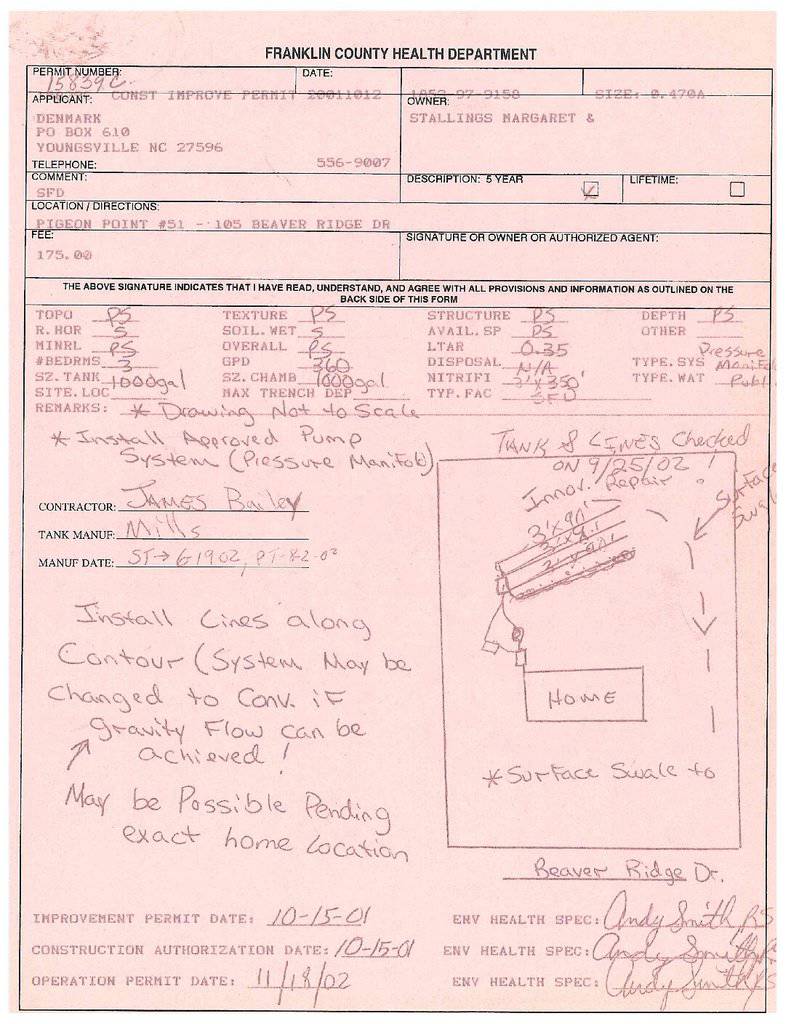 FRANKLIN COUNTY HEALTH DEPARTMENT
PERMIT NUMBER: DATE:
15839C
CONST IMPROVE PERMIT 20011012 1852-97-9158 SIZE: 0.470A
APPLICANT: OWNER:
DENMARK STALLINGS MARGARET &
PO BOX 610
YOUNGSVILLE NC 27596
TELEPHONE: 556-9007
COMMENT: DESCRIPTION: 5 YEAR LIFETIME:
SFD
LOCATION / DIRECTIONS:
PIGEON POINT #51 - 105 BEAVER RIDGE DR
FEE: SIGNATURE OR OWNER OR AUTHORIZED AGENT:
175.00
THE ABOVE SIGNATURE INDICATES THAT I HAVE READ, UNDERSTAND, AND AGREE WITH ALL PROVISIONS AND INFORMATION AS OUTLINED ON THE
BACK SIDE OF THIS FORM
TOPO PS TEXTURE PS STRUCTURE PS DEPTH PS
R.HOR S SOIL.WET S AVAIL.SP PS OTHER
MINRL PS OVERALL PS LTAR 0.35
#BEDRMS 3 GPD 360 DISPOSAL N/A TYPE.SYS Pressure Manifo
SZ.TANK 1000gal SZ.CHAMB 1000gal NITRIFI 3'x350' TYPE.WAT Publ
SITE.LOC MAX TRENCH DEP TYP.FAC SFD
REMARKS: * Drawing Not to Scale
* Install Approved Pump
System (Pressure Manifold)
TANK & LINES Checked
ON 9/25/02 !
Innov. Repair
Surface
Swale
3'x90'
CONTRACTOR: JAMES Bailey
TANK MANUF: Mills
MANUF DATE: ST→ 61902, PT-8-2-02
Install Lines along
Contour (System May be
Changed to Conv. if
gravity Flow can be
achieved !
May be Possible Pending
exact home Location
HOME
* Surface Swale to
Beaver Ridge Dr.
IMPROVEMENT PERMIT DATE: 10-15-01 ENV HEALTH SPEC: Andy Smith RS
CONSTRUCTION AUTHORIZATION DATE: 10-15-01 ENV HEALTH SPEC: Andy Smith RS
OPERATION PERMIT DATE: 11/18/02 ENV HEALTH SPEC: Andy Smith RS